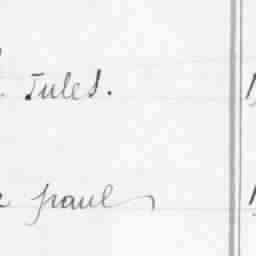 Jules.
paul